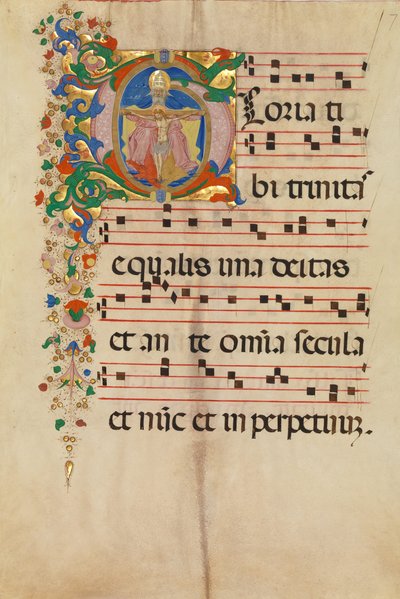 Gloria ti
bi trinitaˢ
equalis una deitas
et an te om̄ia secula
et nūc et in perpetuuꝫ.